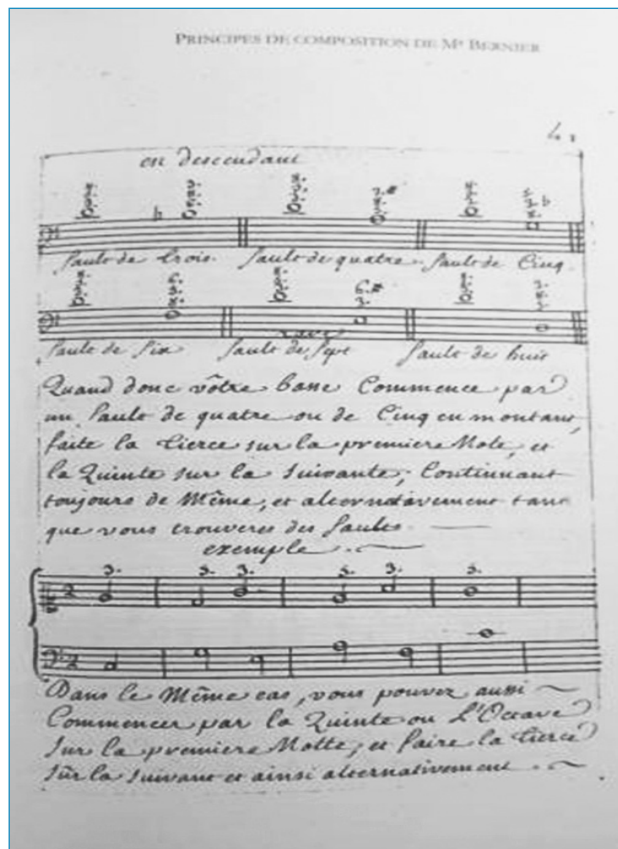 PRINCIPES DE COMPOSITION DE Mr BERNIER
en descendant
Sault de trois. Sault de quatre. Sault de Cinq.
Sault de Six Sault de Sept Sault de huit
rare
Quand donc vôtre basse Commence par
un Sault de quatre ou de Cinq en montant,
faite la tierce sur la premiere Note, et
la Quinte sur la suivante, Continuant
toujours de Même, et alternativement tant
que vous trouveres des Saults.
exemple.
3. 5. 3. 5. 3. 5.
Dans le Même cas, vous pouvez aussi
Commencer par la Quinte ou L'Octave
Sur la premiere Notte, et faire la tierce
sur la suivant et ainsi alternativement.